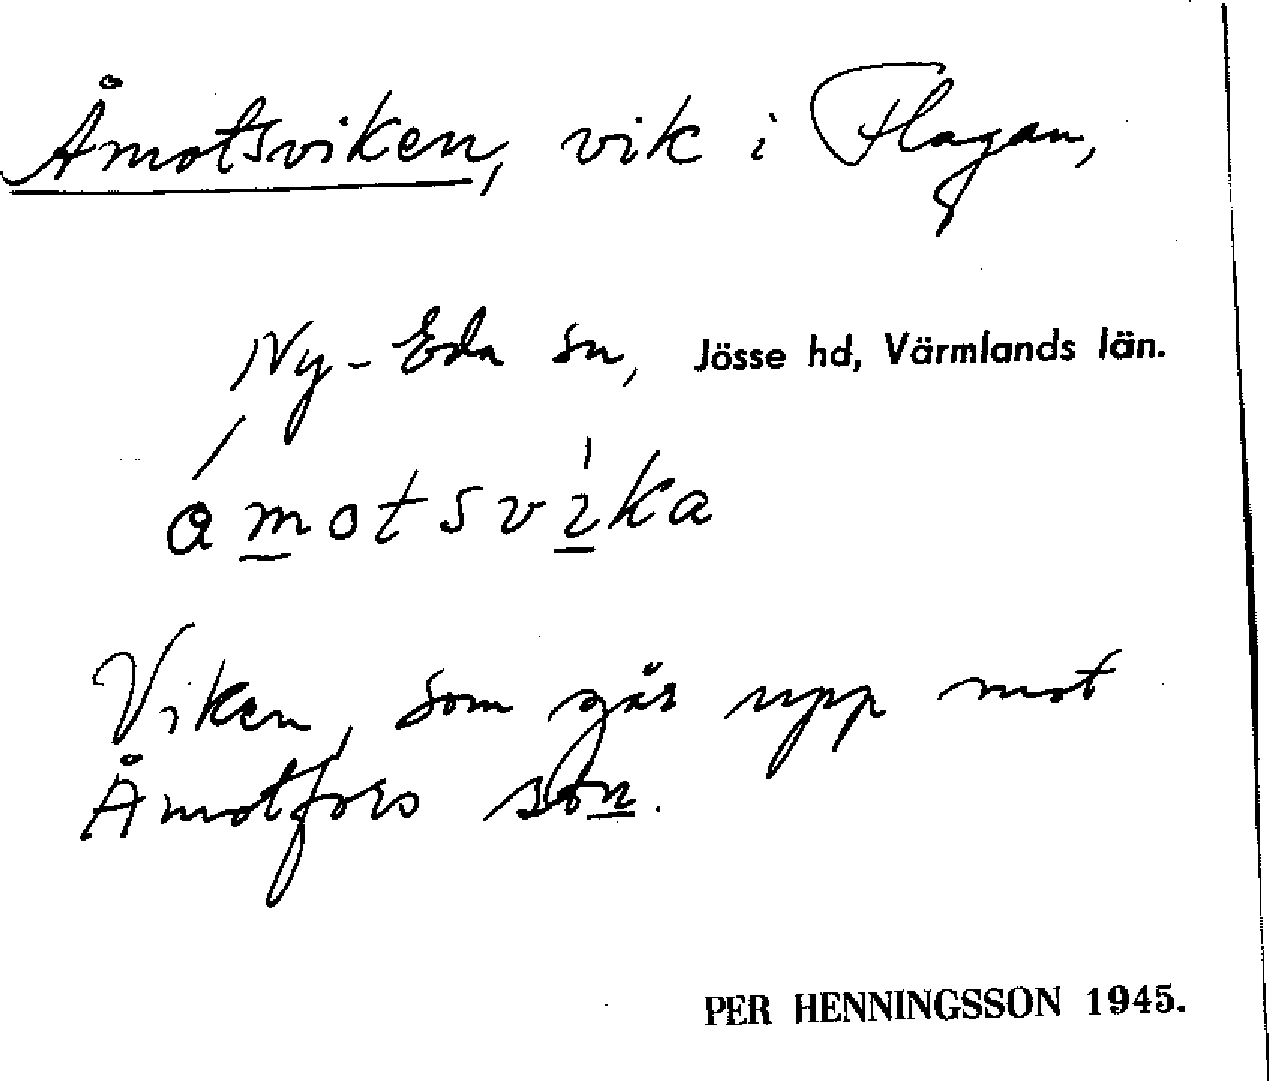 Åmotsviken, vik i Flagan,
Ny-Eda sn, Jösse hd, Värmlands län.
åmotsvika
Viken, som går upp mot
Åmotfors stn.
PER HENNINGSSON 1945.